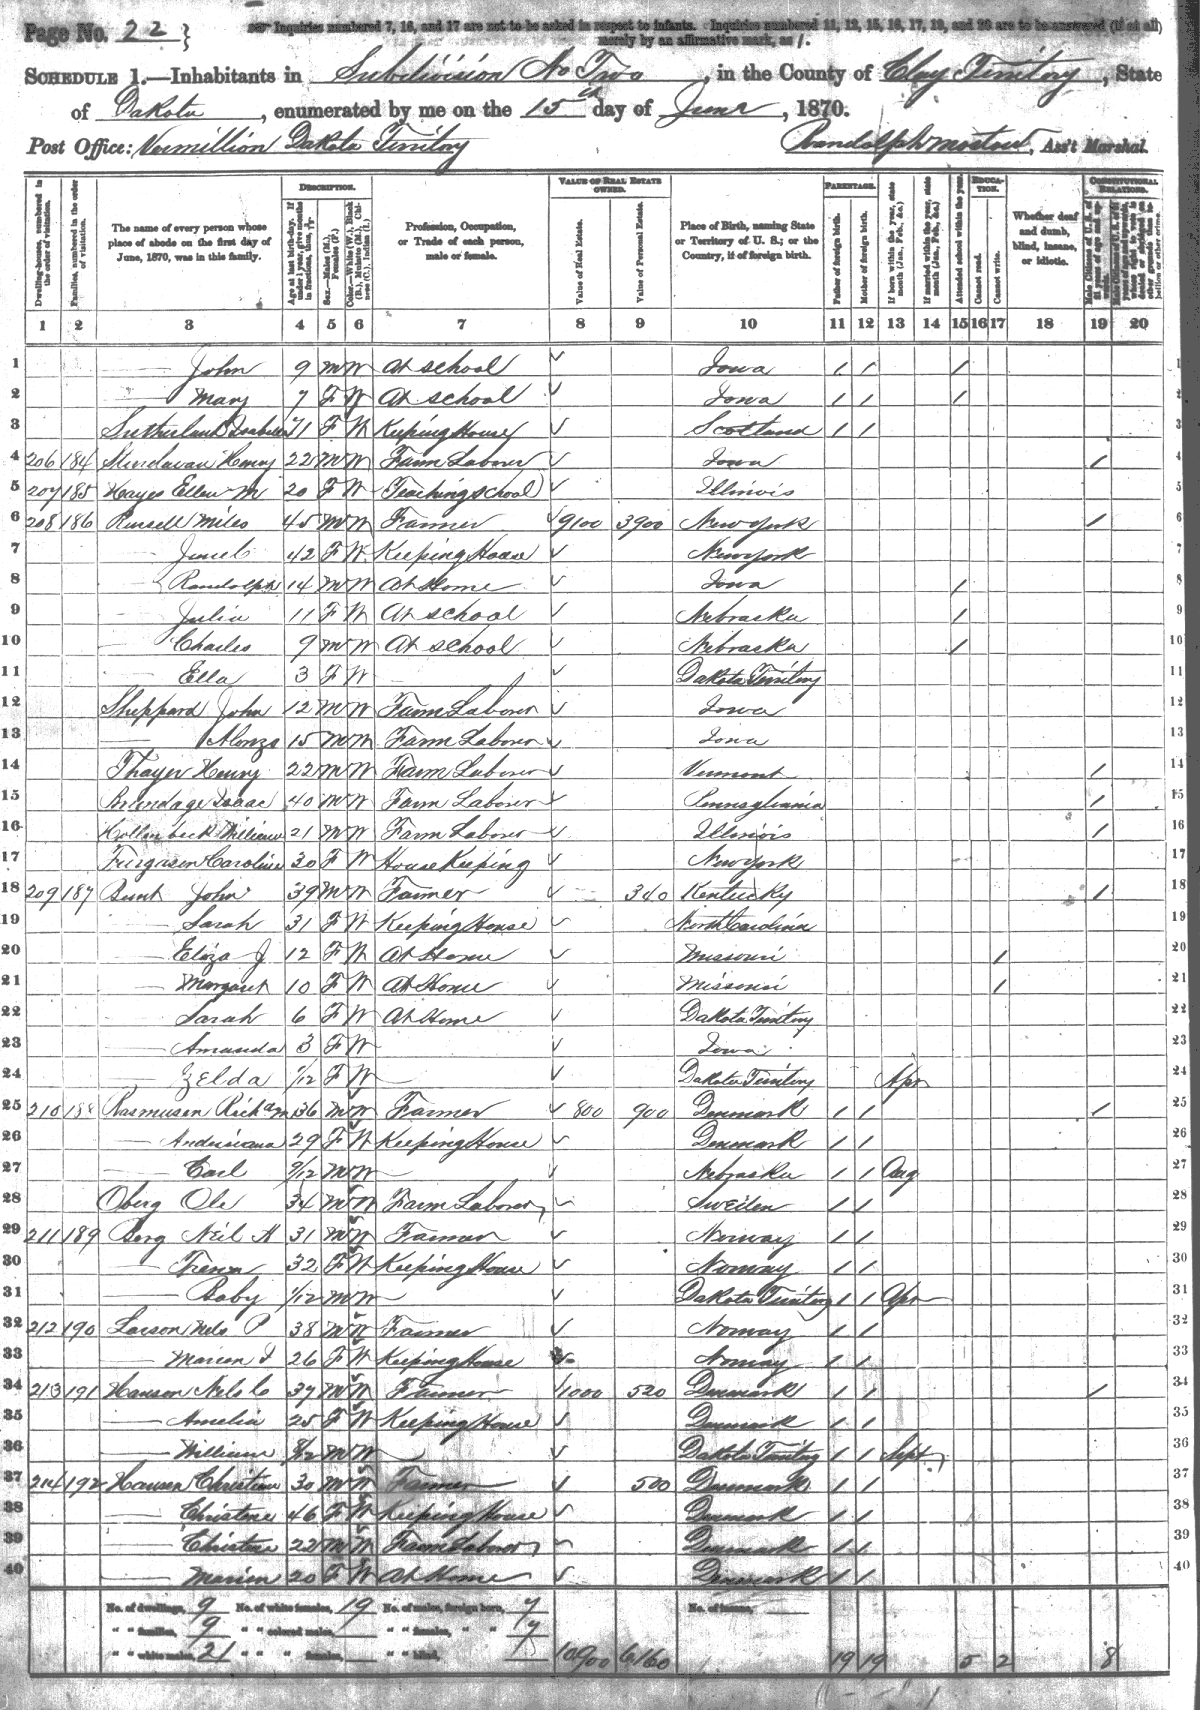 Page No. 22 } Inquiries numbered 7, 16, and 17 are not to be asked in respect to infants. Inquiries numbered 11, 12, 15, 16, 17, 19, and 20 are to be answered (if at all)
merely by an affirmative mark, as /.
SCHEDULE 1.—Inhabitants in Subdivision No Two, in the County of Clay Territory, State
of Dakota, enumerated by me on the 15th day of June, 1870.
Post Office: Vermillion Dakota Territory Ass't Marshal.
DESCRIPTION. VALUE OF REAL ESTATE OWNED. PARENTAGE. EDUCATION. CONSTITUTIONAL RELATIONS.
Dwelling-houses, numbered in the order of visitation. Families, numbered in the order of visitation. The name of every person whose place of abode on the first day of June, 1870, was in this family. Age at last birth-day. If under 1 year, give months in fractions, thus, 3/12. Sex.—Males (M.), Females (F.) Color.—White (W.), Black (B.), Mulatto (M.), Chinese (C.), Indian (I.) Profession, Occupation, or Trade of each person, male or female. Value of Real Estate. Value of Personal Estate. Place of Birth, naming State or Territory of U. S.; or the Country, if of foreign birth. Father of foreign birth. Mother of foreign birth. If born within the year, state month (Jan., Feb., &c.) If married within the year, state month (Jan., Feb., &c.) Attended school within the year. Cannot read. Cannot write. Whether deaf and dumb, blind, insane, or idiotic.
1 2 3 4 5 6 7 8 9 10 11 12 13 14 15 16 17 18 19 20
1 — John 9 M W At school ✓ Iowa / / / 1
2 — Mary 7 F W At school ✓ Iowa / / / 2
3 Sutherland Isabella 71 F W Keeping House ✓ Scotland / / 3
4 206 184 Henry 22 M W Farm Laborer ✓ Iowa / 4
5 207 185 Hayes Ellen M 20 F W Teaching school ✓ Illinois 5
6 208 186 Russell Miles 45 M W Farmer ✓ 9100 3900 New York / 6
7 — 42 F W Keeping House ✓ New York 7
8 — Randolph 14 M W At Home ✓ Iowa / 8
9 — Julia 11 F W At school ✓ Nebraska / 9
10 — Charles 9 M W At school ✓ Nebraska / 10
11 — Ella 3 F W — ✓ Dakota Territory 11
12 Sheppard John 12 M W Farm Laborer ✓ Iowa 12
13 — Alonzo 15 M W Farm Laborer ✓ Iowa 13
14 Thayer Henry 22 M W Farm Laborer ✓ Vermont / 14
15 Brundage Isaac 40 M W Farm Laborer ✓ Pennsylvania / 15
16 Hollenbeck William 21 M W Farm Laborer ✓ Illinois / 16
17 Ferguson Caroline 30 F W House Keeping ✓ New York 17
18 209 187 Bunt John 39 M W Farmer ✓ 340 Kentucky / 18
19 — Sarah 31 F W Keeping House ✓ North Carolina 19
20 — Eliza J 12 F W At Home ✓ Missouri / 20
21 — Margaret 10 F W At Home ✓ Missouri / 21
22 — Sarah 6 F W At Home ✓ Dakota Territory 22
23 — Amanda 3 F W ✓ Iowa 23
24 — Zelda 1/12 F W — ✓ Dakota Territory Apr 24
25 210 188 Rasmusen 36 M W Farmer ✓ 800 900 Denmark / / / 25
26 — 29 F W Keeping House ✓ Denmark / / 26
27 — Carl 9/12 M W — ✓ Nebraska / / Aug 27
28 Oberg Ole 34 M W Farm Laborer ✓ Sweden / / 28
29 211 189 Berg Neil H 31 M W Farmer ✓ Norway / / 29
30 — 32 F W Keeping House ✓ Norway / / 30
31 — Baby 1/12 M W — ✓ Dakota Territory / / Apr 31
32 212 190 Larson Nels P 38 M W Farmer ✓ Norway / / 32
33 — 26 F W Keeping House Norway / / 33
34 213 191 Hanson Nels C 37 M W Farmer ✓ 1000 520 Denmark / / / 34
35 — Amelia 25 F W Keeping House ✓ Denmark / / 35
36 — William 8/12 M W — ✓ Dakota Territory / / Sept 36
37 214 192 Hansen Christian 30 M W Farmer ✓ 500 Denmark / / 37
38 — Christine 46 F W Keeping House ✓ Denmark / / 38
39 — 22 M W Farm Laborer ✓ Denmark / / 39
40 — 20 F W At Home ✓ Denmark / / 40
No. of dwellings, 9 No. of white females, 19 No. of males, foreign born, 7 No. of insane,
" " families, 9 " " colored males, — " " females, " " 7
" " white males, 21 " " " females, — " " blind, 10900 6160 19 19 5 2 8